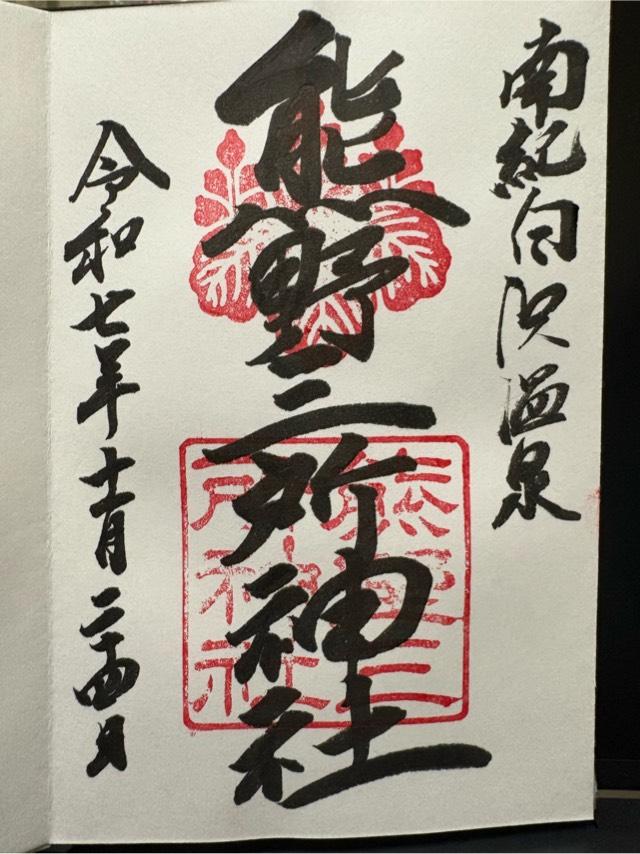 南紀白浜温泉
熊野三所神社
熊野三所神社
令和七年十一月二十四日